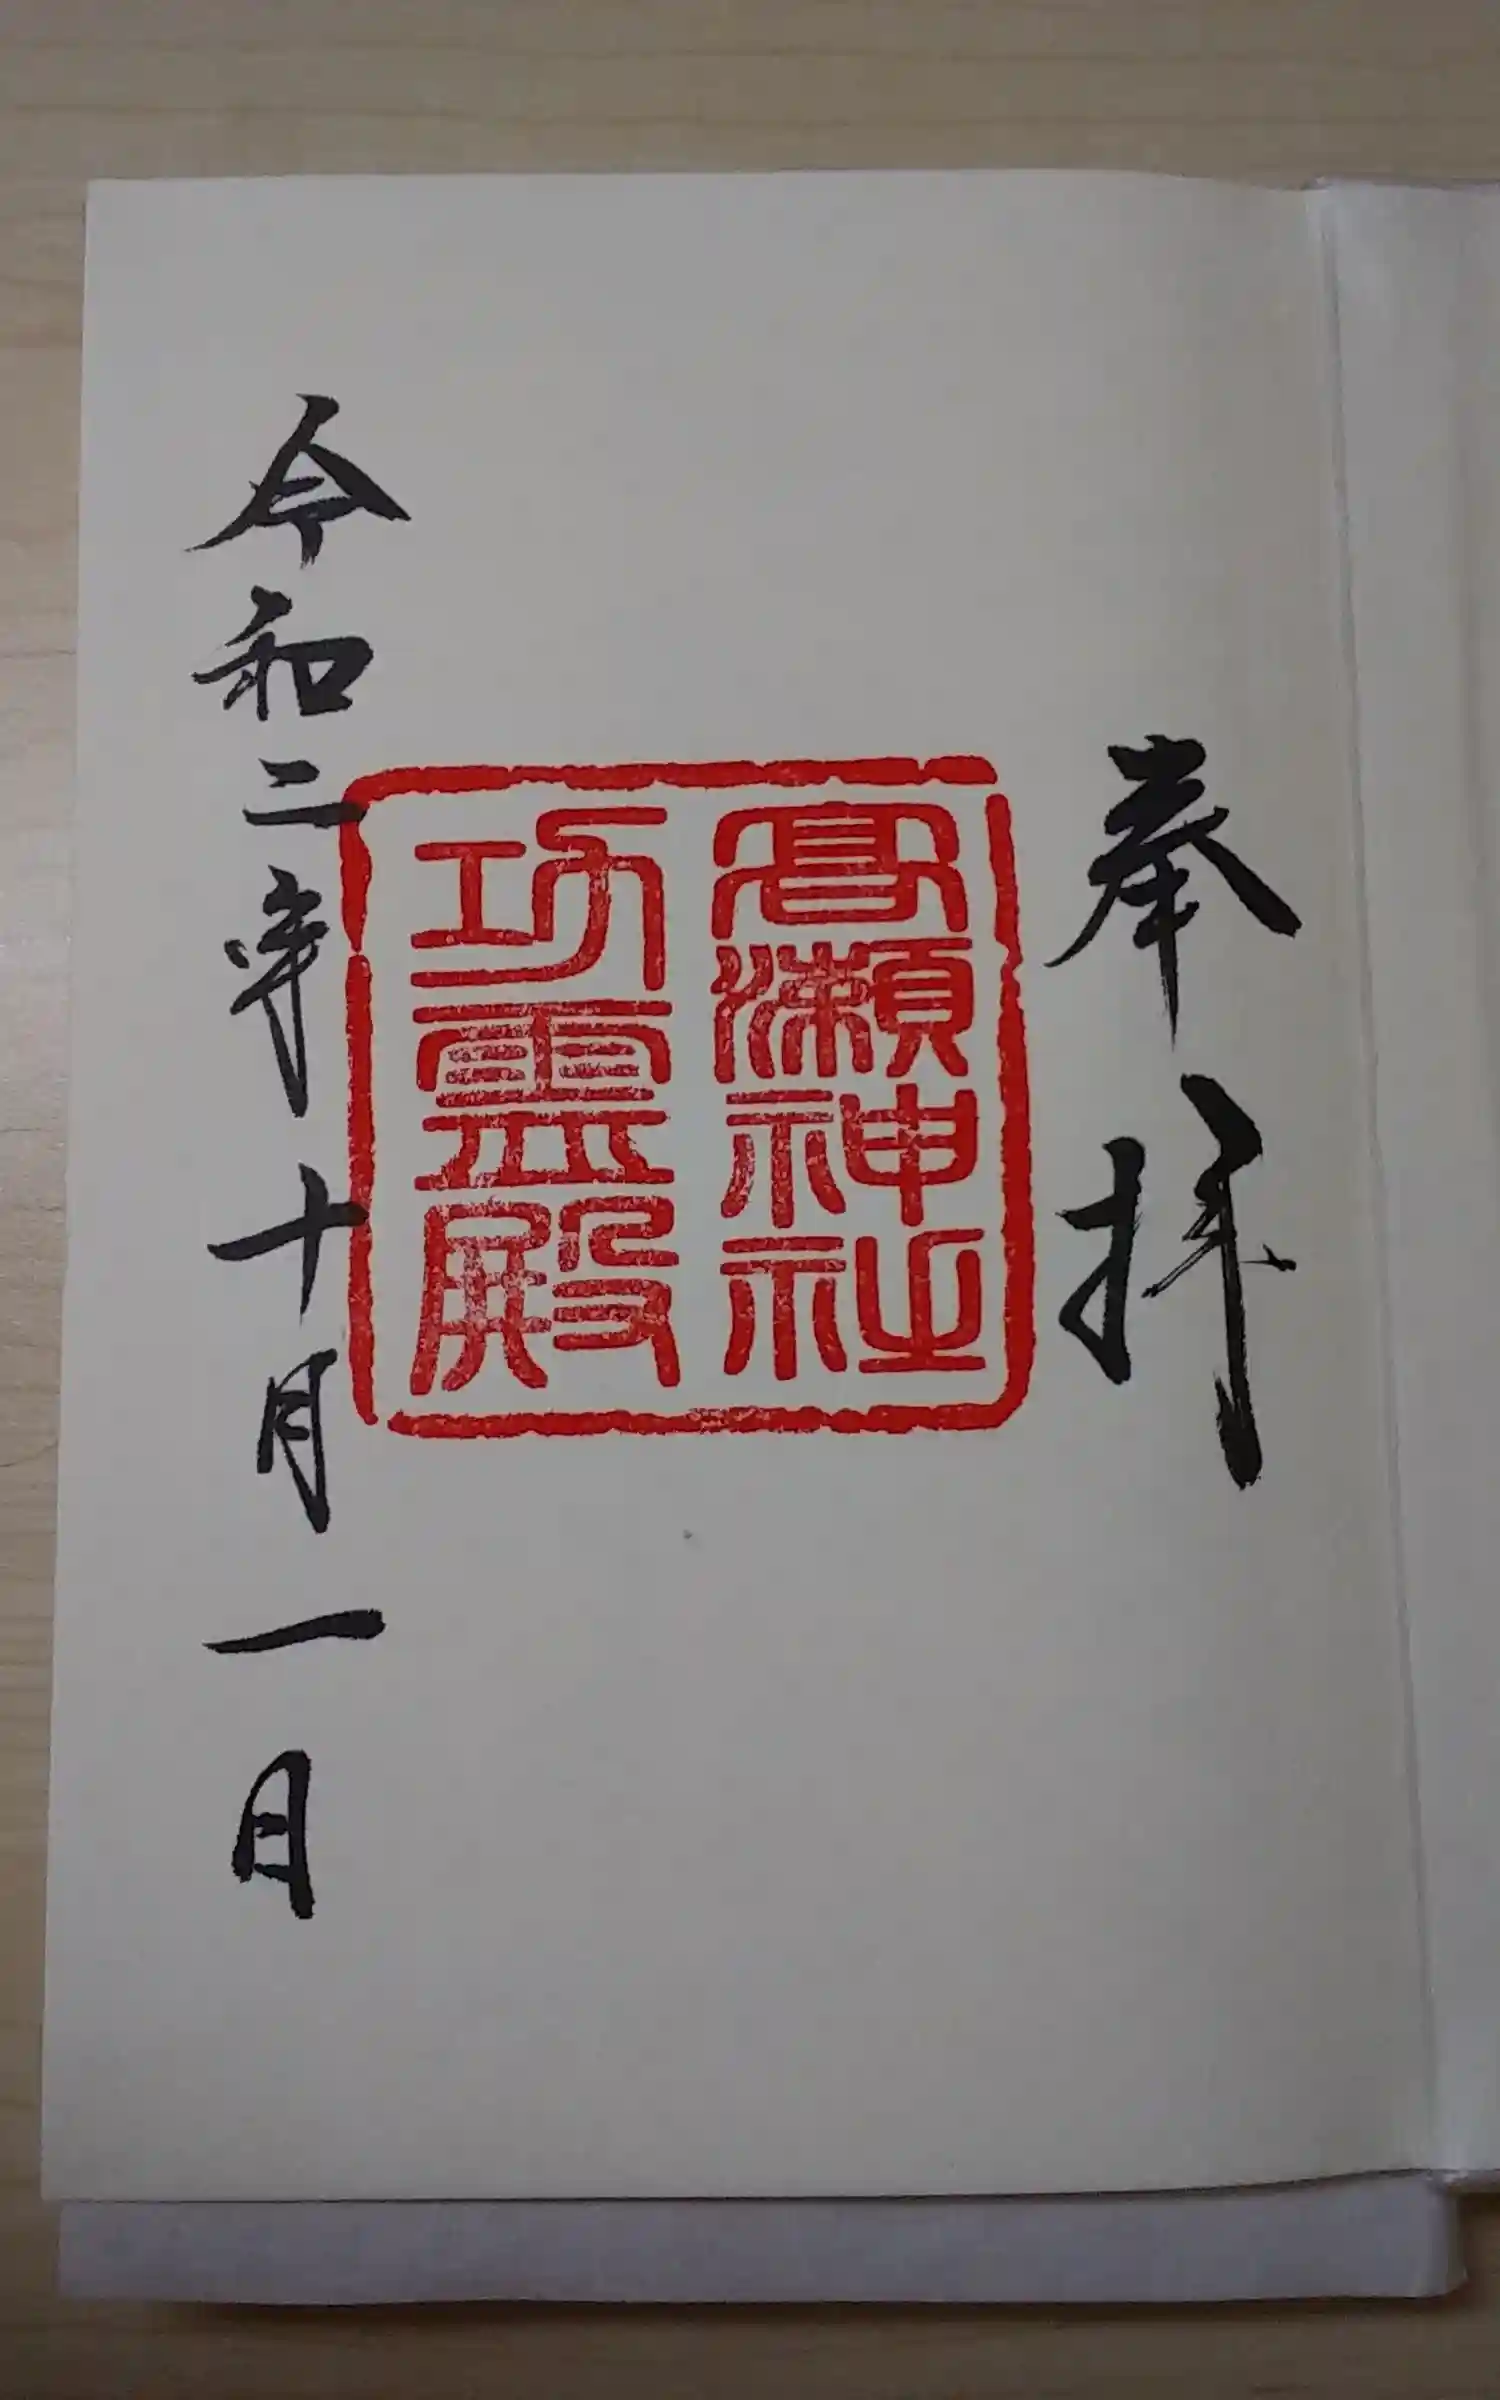 奉拝
髙瀬神社
功霊殿
令和二年十月一日